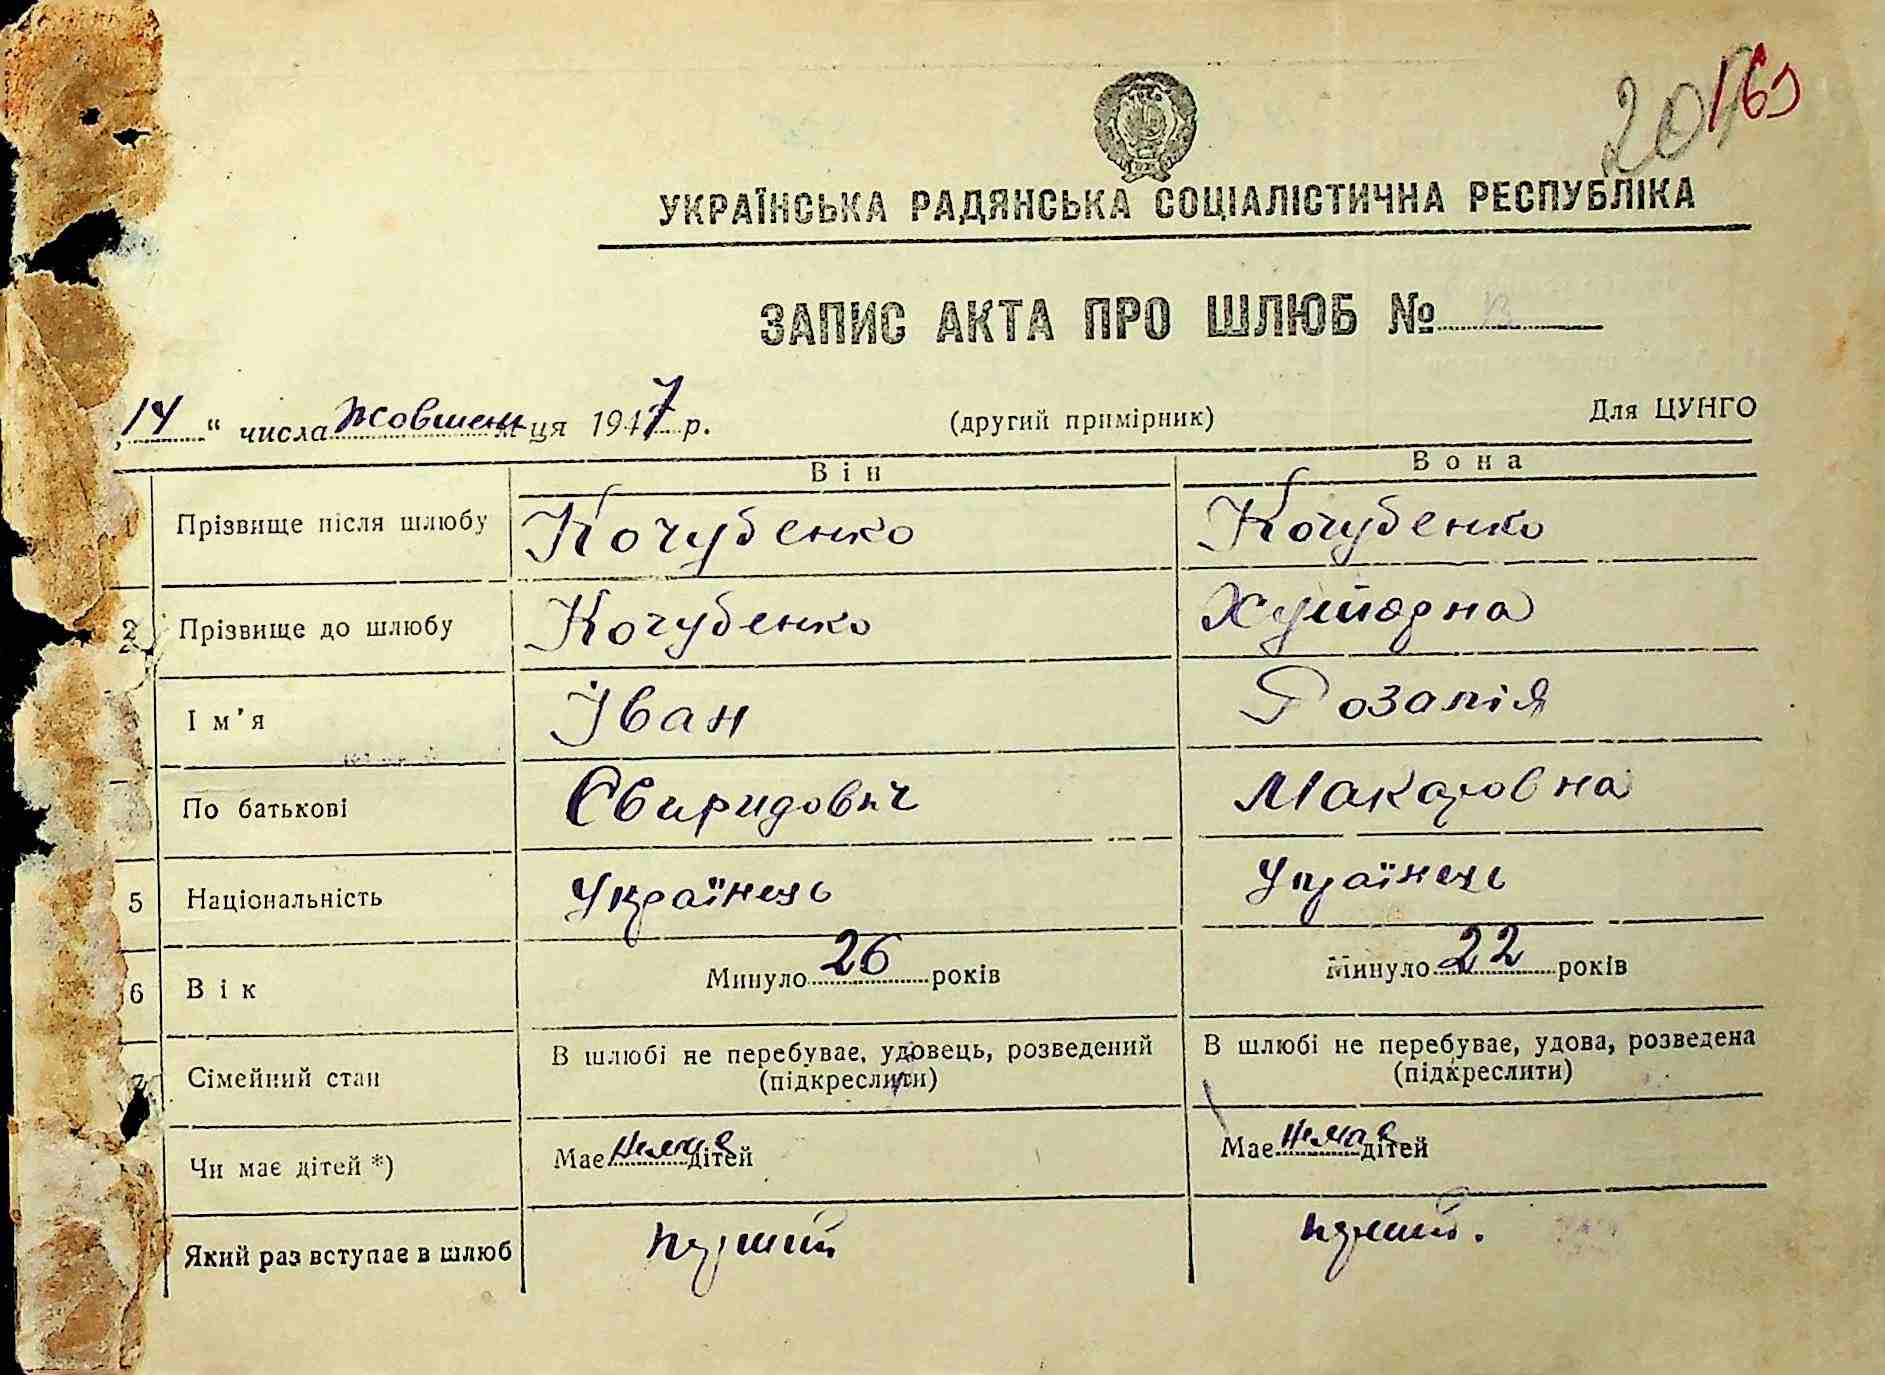 20 169
УКРАЇНСЬКА РАДЯНСЬКА СОЦІАЛІСТИЧНА РЕСПУБЛІКА
ЗАПИС АКТА ПРО ШЛЮБ №
„14“ числа жовтень м-ця 1947 р. (другий примірник) Для ЦУНГО
Він Вона
Прізвище після шлюбу Кочубенко Кочубенко
2 Прізвище до шлюбу Кочубенко Хуторна
Ім'я Іван Розалія
По батькові Свиридович Макаровна
5 Національність Українець Українець
6 Вік Минуло 26 років Минуло 22 років
7 Сімейний стан В шлюбі не перебуває, удовець, розведений (підкреслити) В шлюбі не перебуває, удова, розведена (підкреслити)
Чи має дітей *) Має немає дітей Має немає дітей
Який раз вступає в шлюб перший перший.